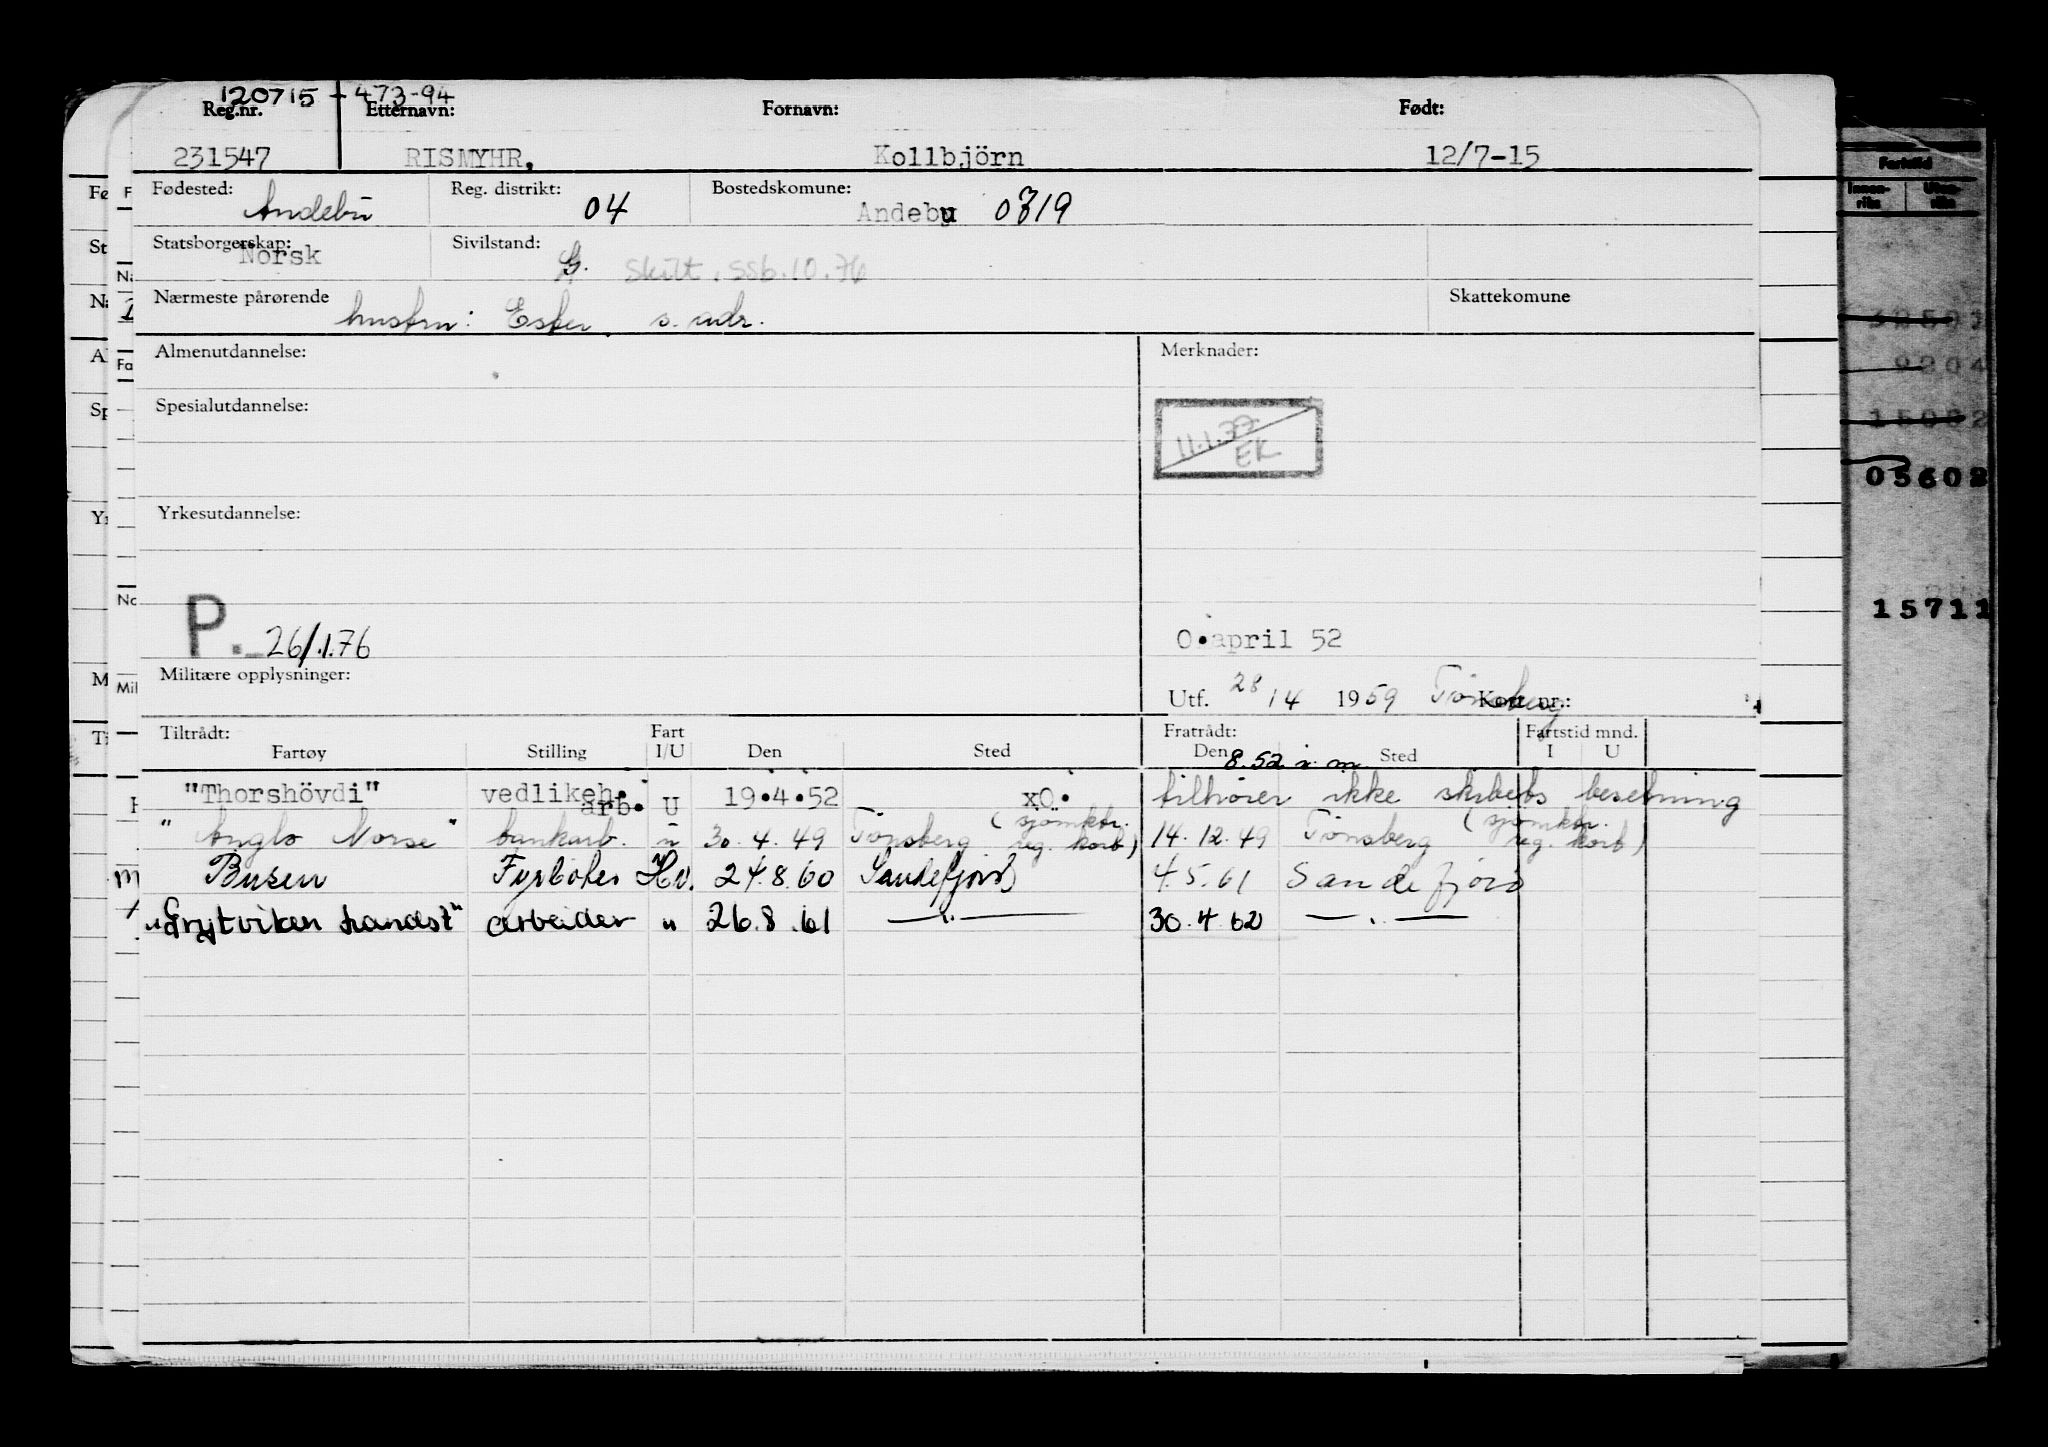 120715 - 473-94
Reg.nr. Etternavn: Fornavn: Født:
231547 RISMYHR, Kollbjörn 12/7-15
Fødested: Andebu Reg. distrikt: 04 Bostedskomune: Andebu 0719
Statsborgerskap: Norsk Sivilstand: G. Skilt. SSb. 10.76
Nærmeste pårørende hustru: Ester s. adr. Skattekomune
Almenutdannelse: Merknader:
Spesialutdannelse:
11.1.
EK
Yrkesutdannelse:
P. 26/1.76
O.april 52
Militære opplysninger:
Utf. 28/4 1959 Tönsberg Kort nr.:
Tiltrådt: Fart Fratrådt: Fartstid mnd.
Fartøy Stilling I/U Den Sted Den Sted I U
8.52 i. m
"Thorshövdi" vedlikeh. arb. U 19.4.52 xO. tilhører ikke skibets besetning
"Anglo Norse" tankarb. u 30.4.49 Tönsberg (sjömktr. reg. kort) 14.12.49 Tönsberg (sjömktr. reg. kort)
Busen Fyrböter Hv. 24.8.60 Sandefjord 4.5.61 Sandefjord
"Grytviken landst" arbeider " 26.8.61 — " — 30.4.62 — " —
Fartstid
Innen-riks Uten-riks
05602
15711